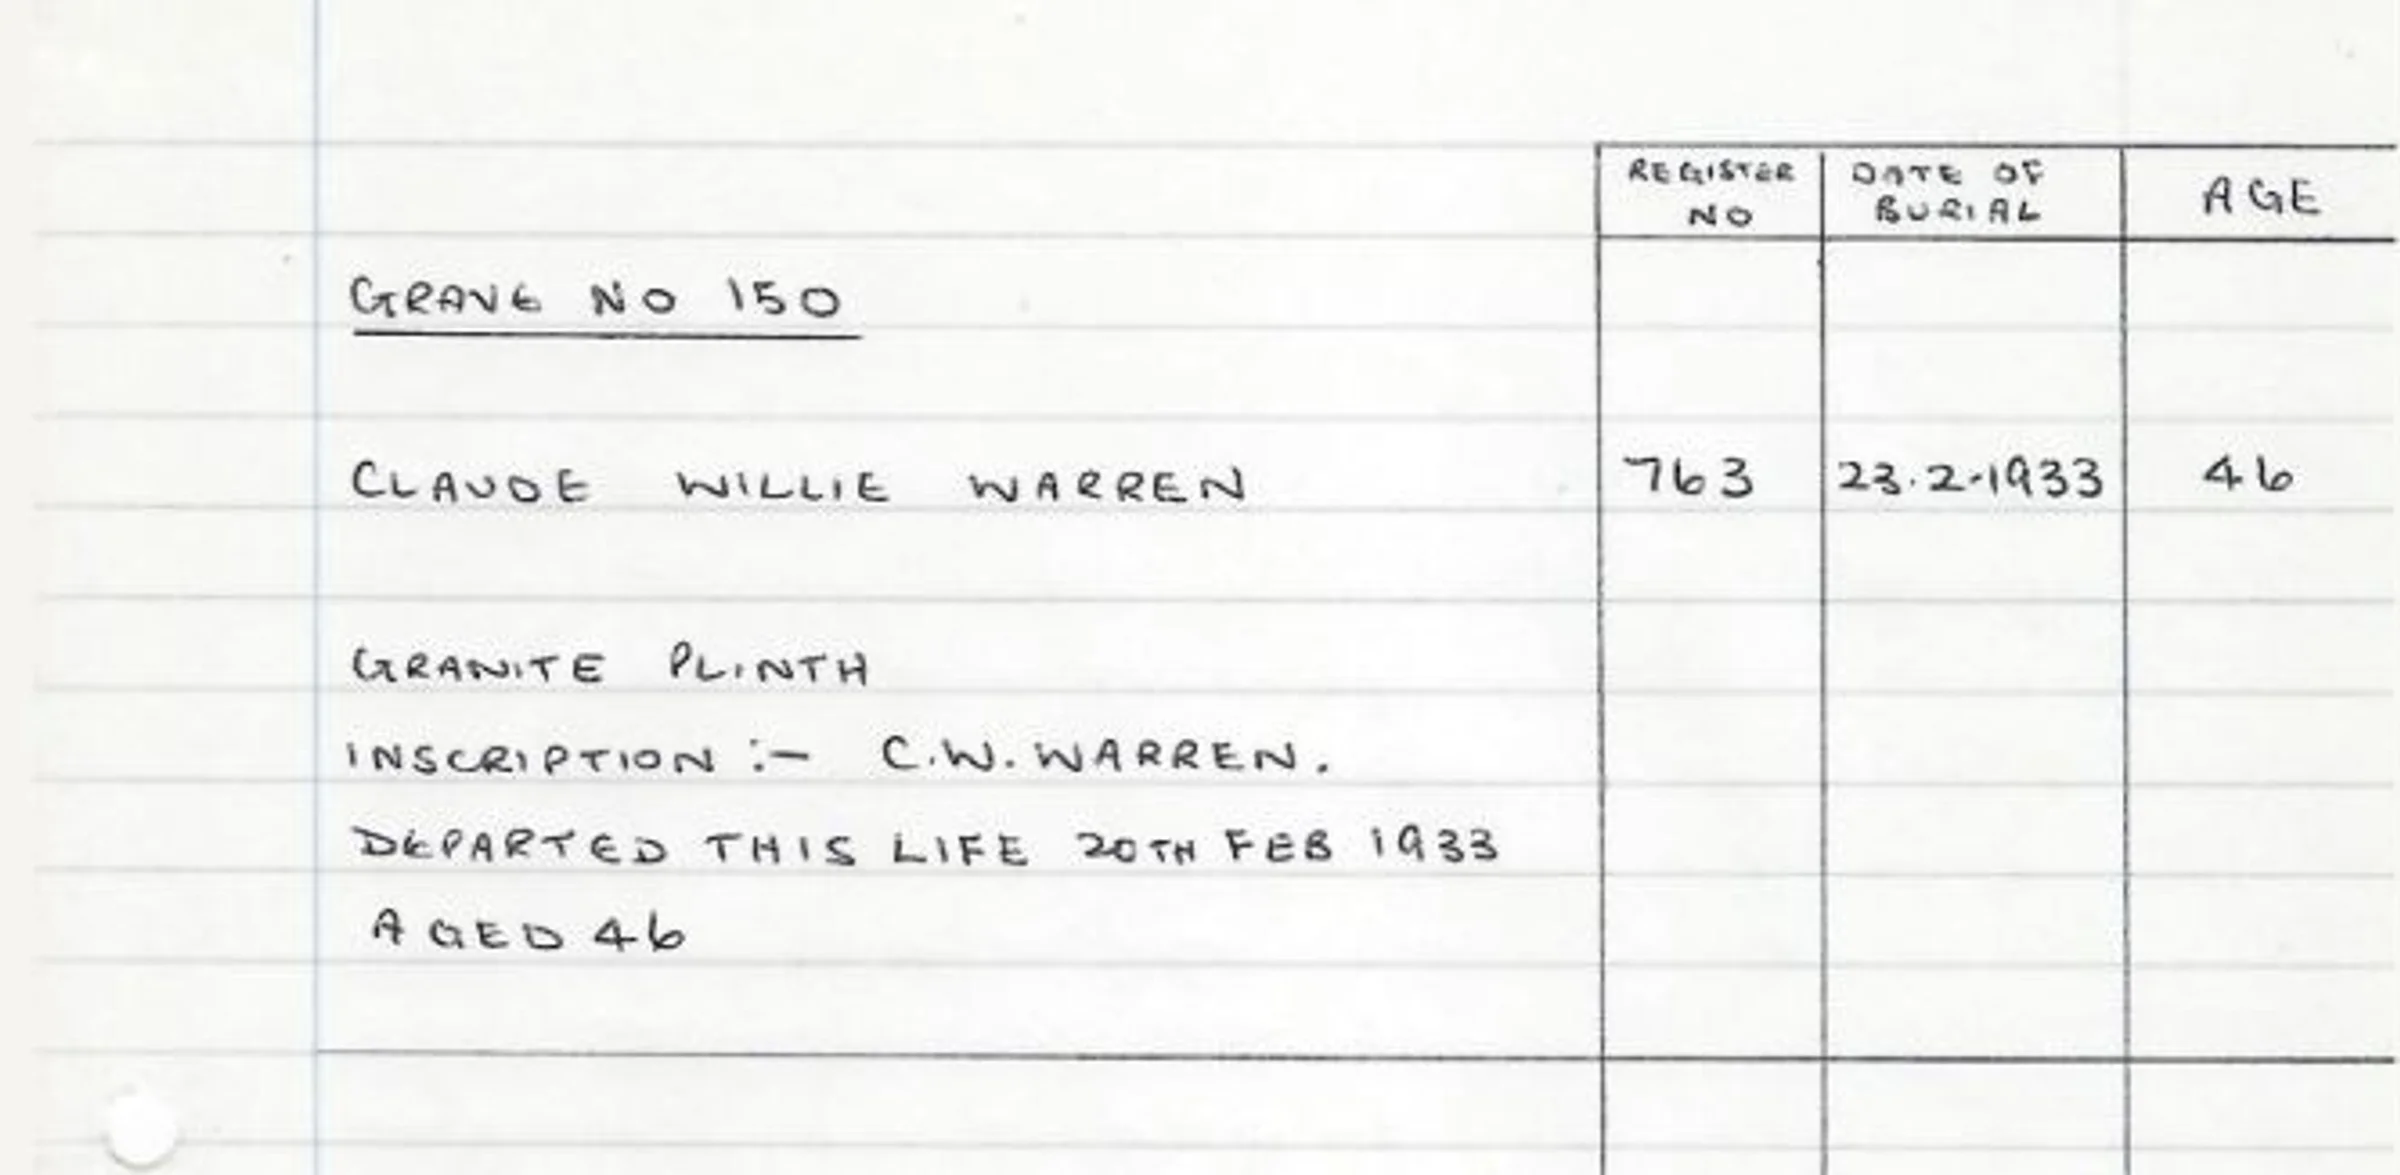 REGISTER NO DATE OF BURIAL AGE
GRAVE NO 150
CLAUDE WILLIE WARREN 763 23.2.1933 46
GRANITE PLINTH
INSCRIPTION :- C.W. WARREN.
DEPARTED THIS LIFE 20TH FEB 1933
AGED 46